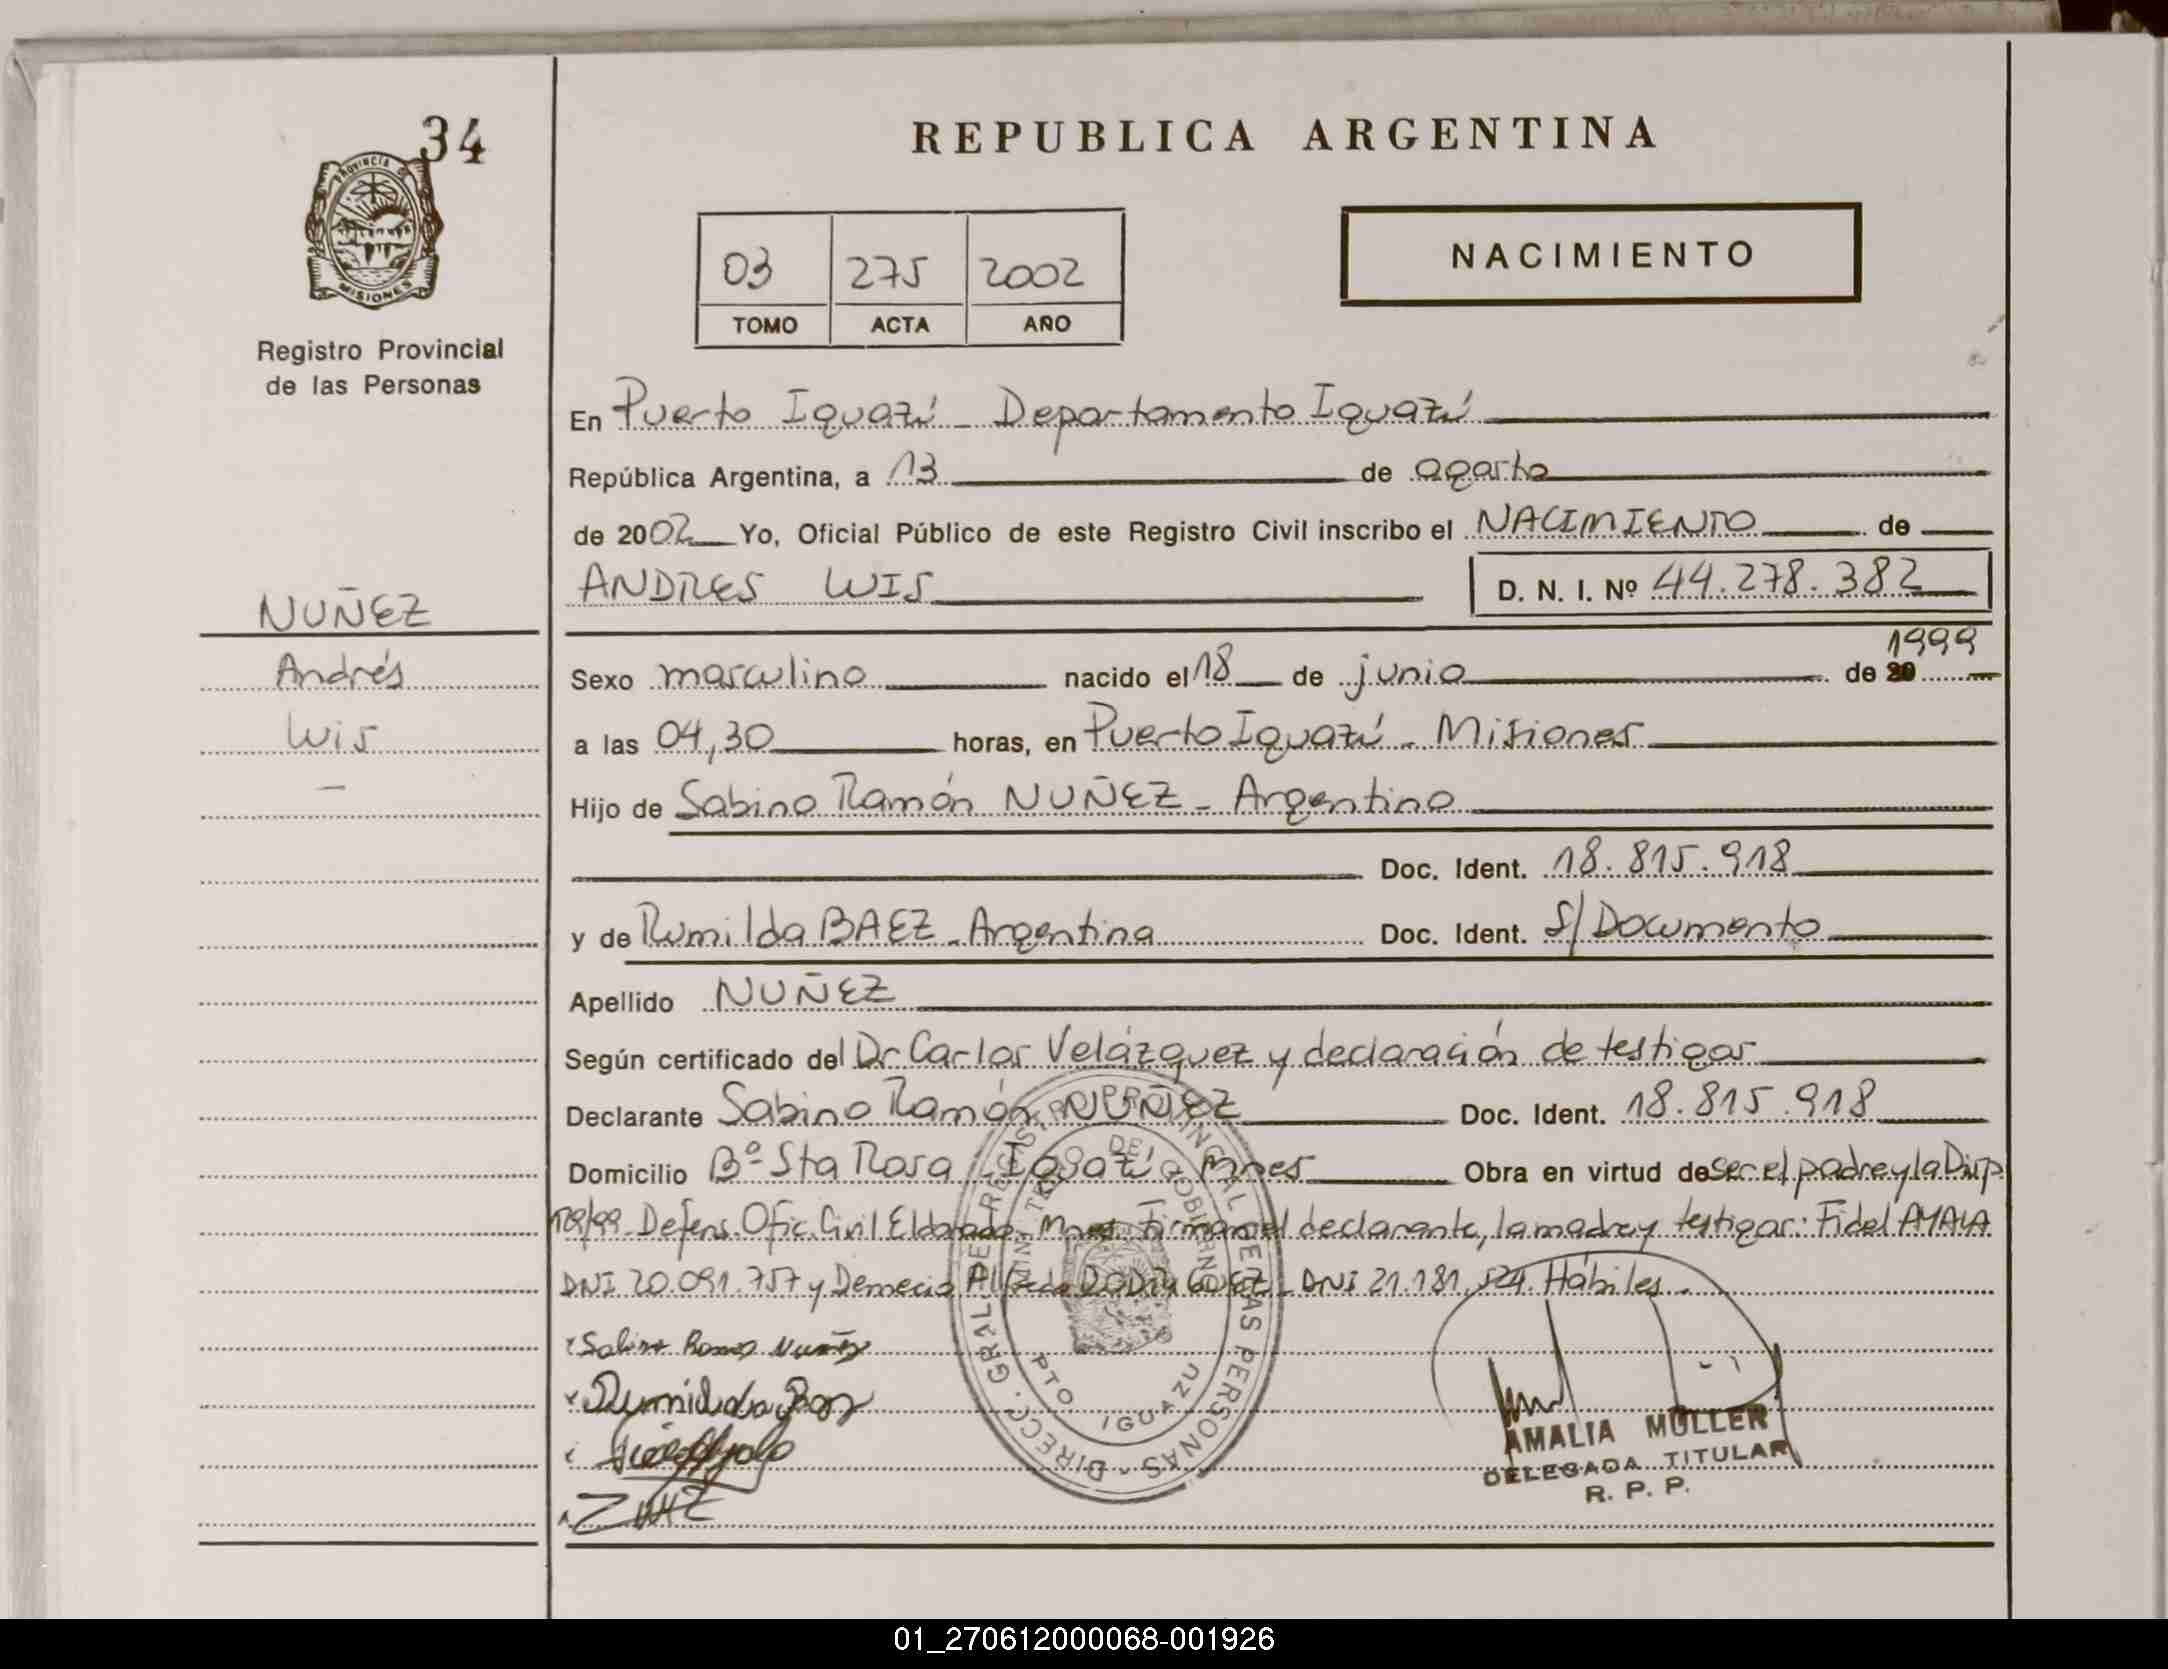 34
PROVINCIA DE
MISIONES
Registro Provincial
de las Personas
REPUBLICA ARGENTINA
03 275 2002
TOMO ACTA AÑO
NACIMIENTO
En Puerto Iguazú - Departamento Iguazú
República Argentina, a 13 de agosto
de 2002 Yo, Oficial Público de este Registro Civil inscribo el NACIMIENTO de
ANDRES LUIS D. N. I. Nº 44.278.382
NUÑEZ
Andrés
Luis
1999
Sexo masculino nacido el 18 de junio de 20
a las 04,30 horas, en Puerto Iguazú - Misiones
Hijo de Sabino Ramón NUÑEZ - Argentino
Doc. Ident. 18.815.918
y de Rumilda BAEZ - Argentina Doc. Ident. S/Documento
Apellido NUÑEZ
Según certificado del Dr. Carlos Velázquez y declaración de testigos
Declarante Sabino Ramón NUÑEZ Doc. Ident. 18.815.918
Domicilio Bº Sta Rosa - Iguazú - Mnes Obra en virtud de ser el padre y la Disp.
/99 - Defens. Ofic. Civil Eldorado - Mnes. firman el declarante, la madre y testigos: Fidel AYALA
DNI 20.091.757 y Demecio Alfredo RODRIGUEZ - DNI 21.181.524. Hábiles.
Sabino Ramon Nuñez
Rumilda Baez
DIRECC. GRAL. DE REGISTRO PROVINCIAL DE LAS PERSONAS
MINISTERIO DE GOBIERNO
PTO IGUAZU
AMALIA MULLER
DELEGADA TITULAR
R. P. P.
01_270612000068-001926